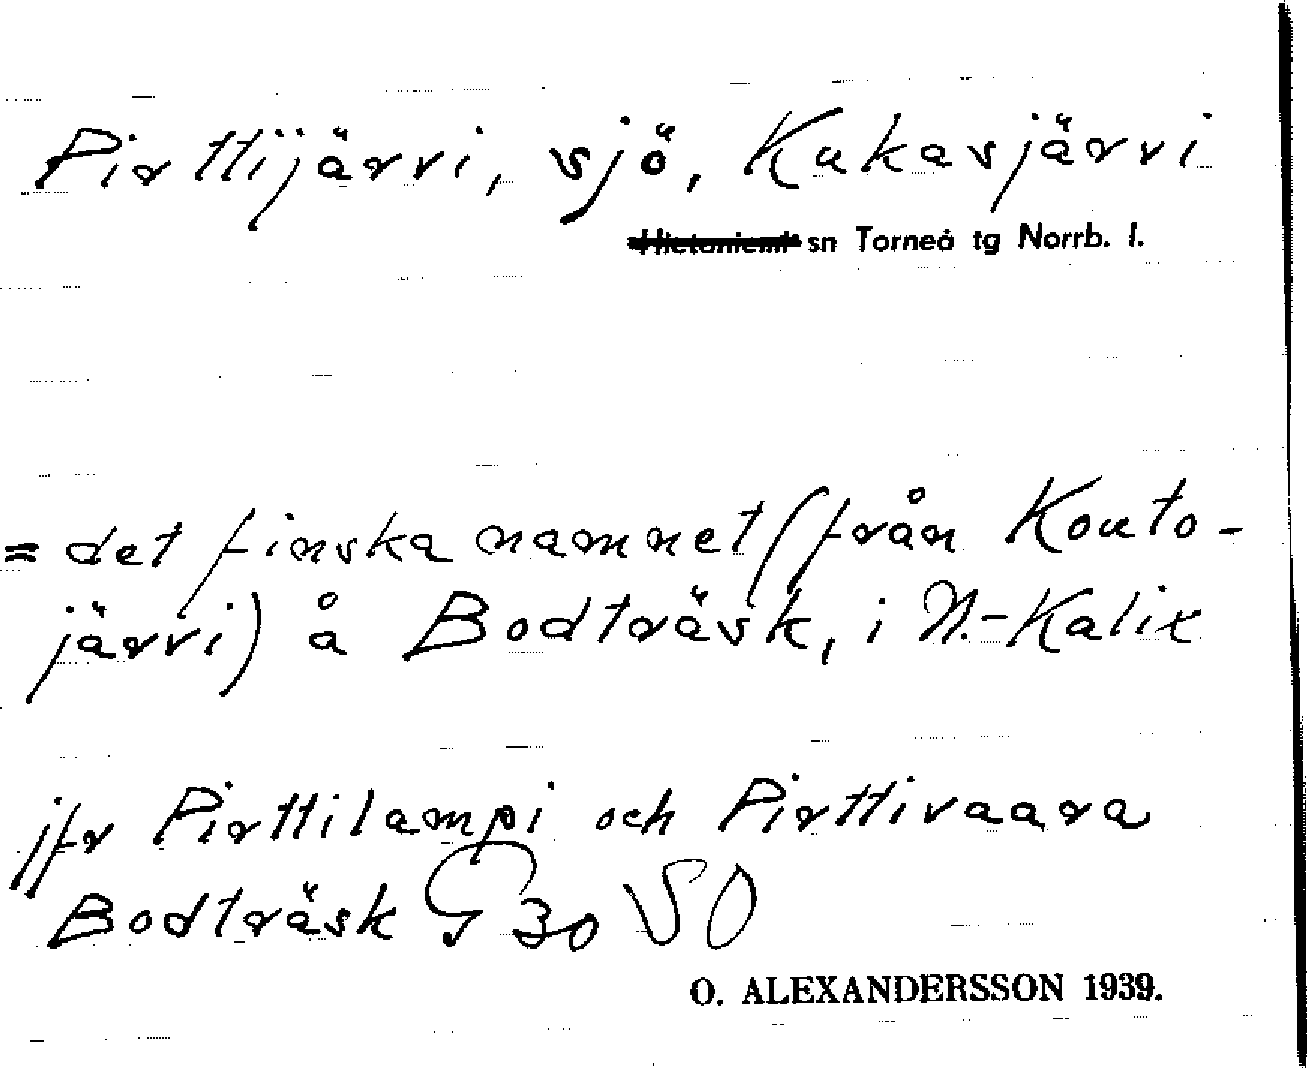 Pirttijärvi, sjö, Kukasjärvi
Hietaniemi sn Torneå tg Norrb. l.
= det finska namnet (från Kouto-
järvi) å Bodträsk, i N.-Kalix
jfr Pirttilampi och Pirttivaara
Bodträsk G 30 SO
O. ALEXANDERSSON 1939.